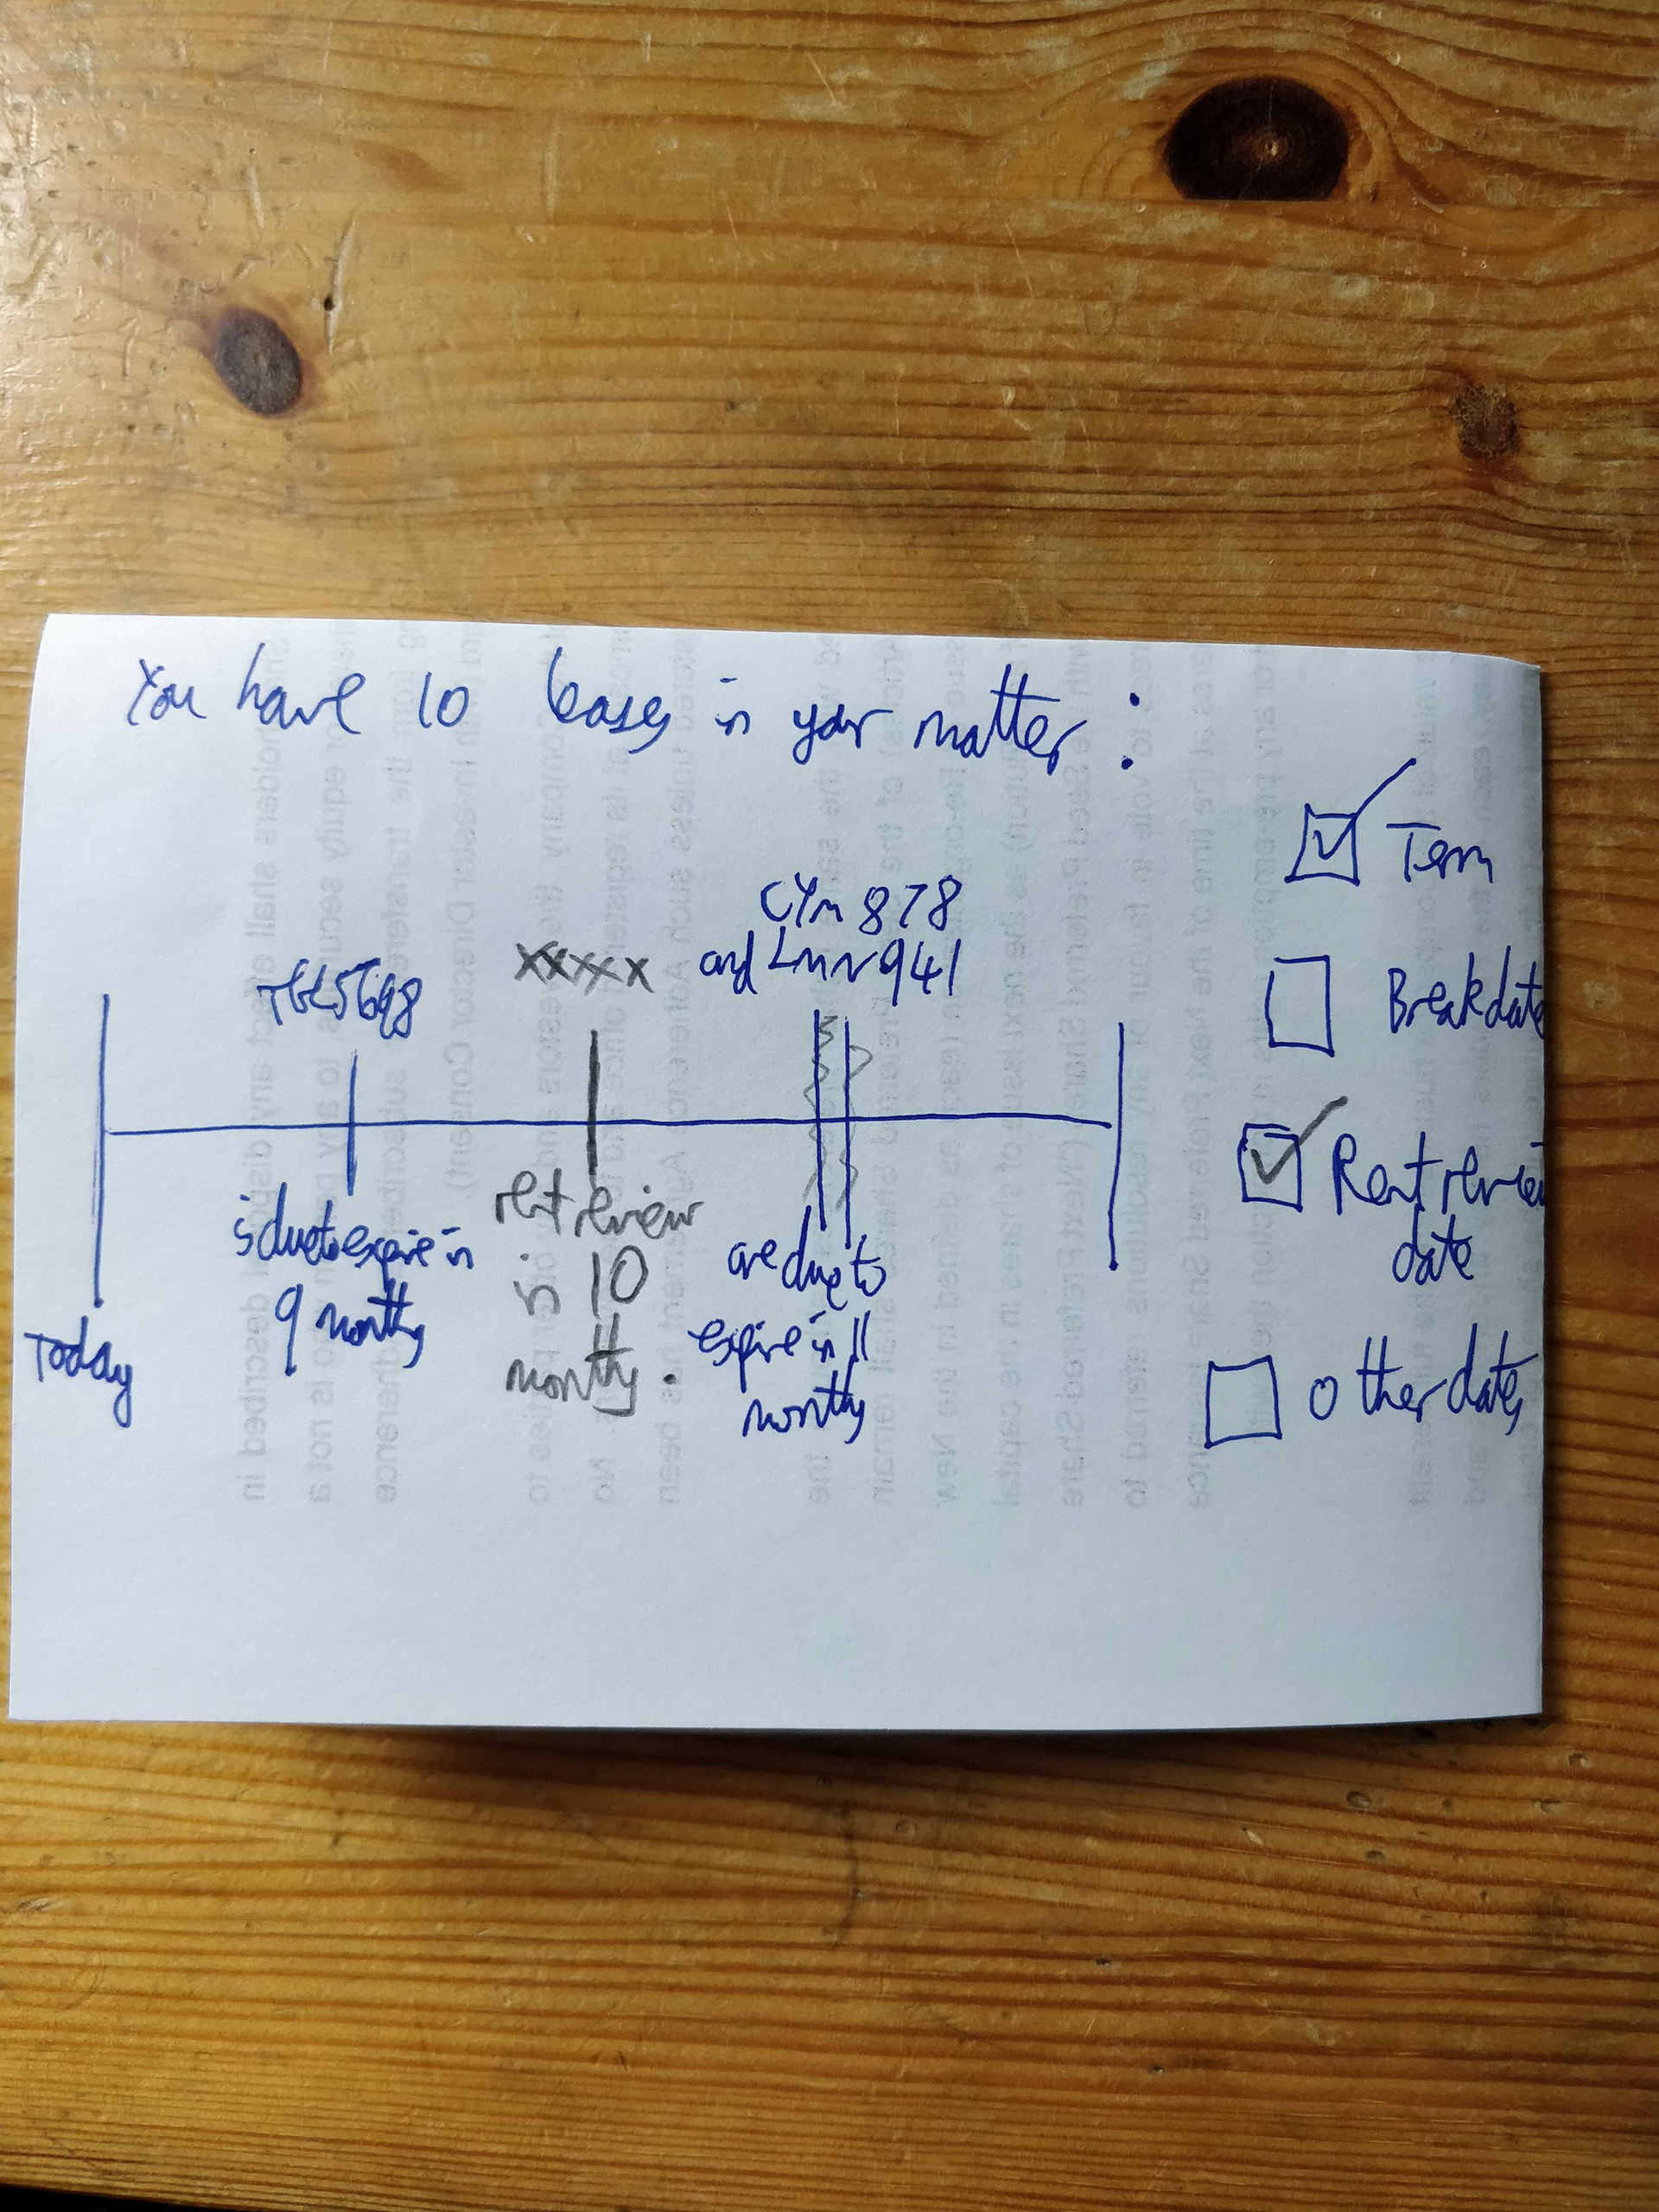 You have 10 leases in your matter :
Term
CYM 878
and LMN 941
XXXXX
Break date
Rent review
date
is due to expire in
9 months
rent review
10
months.
are due to
expire in 11
months
Today
Other dates